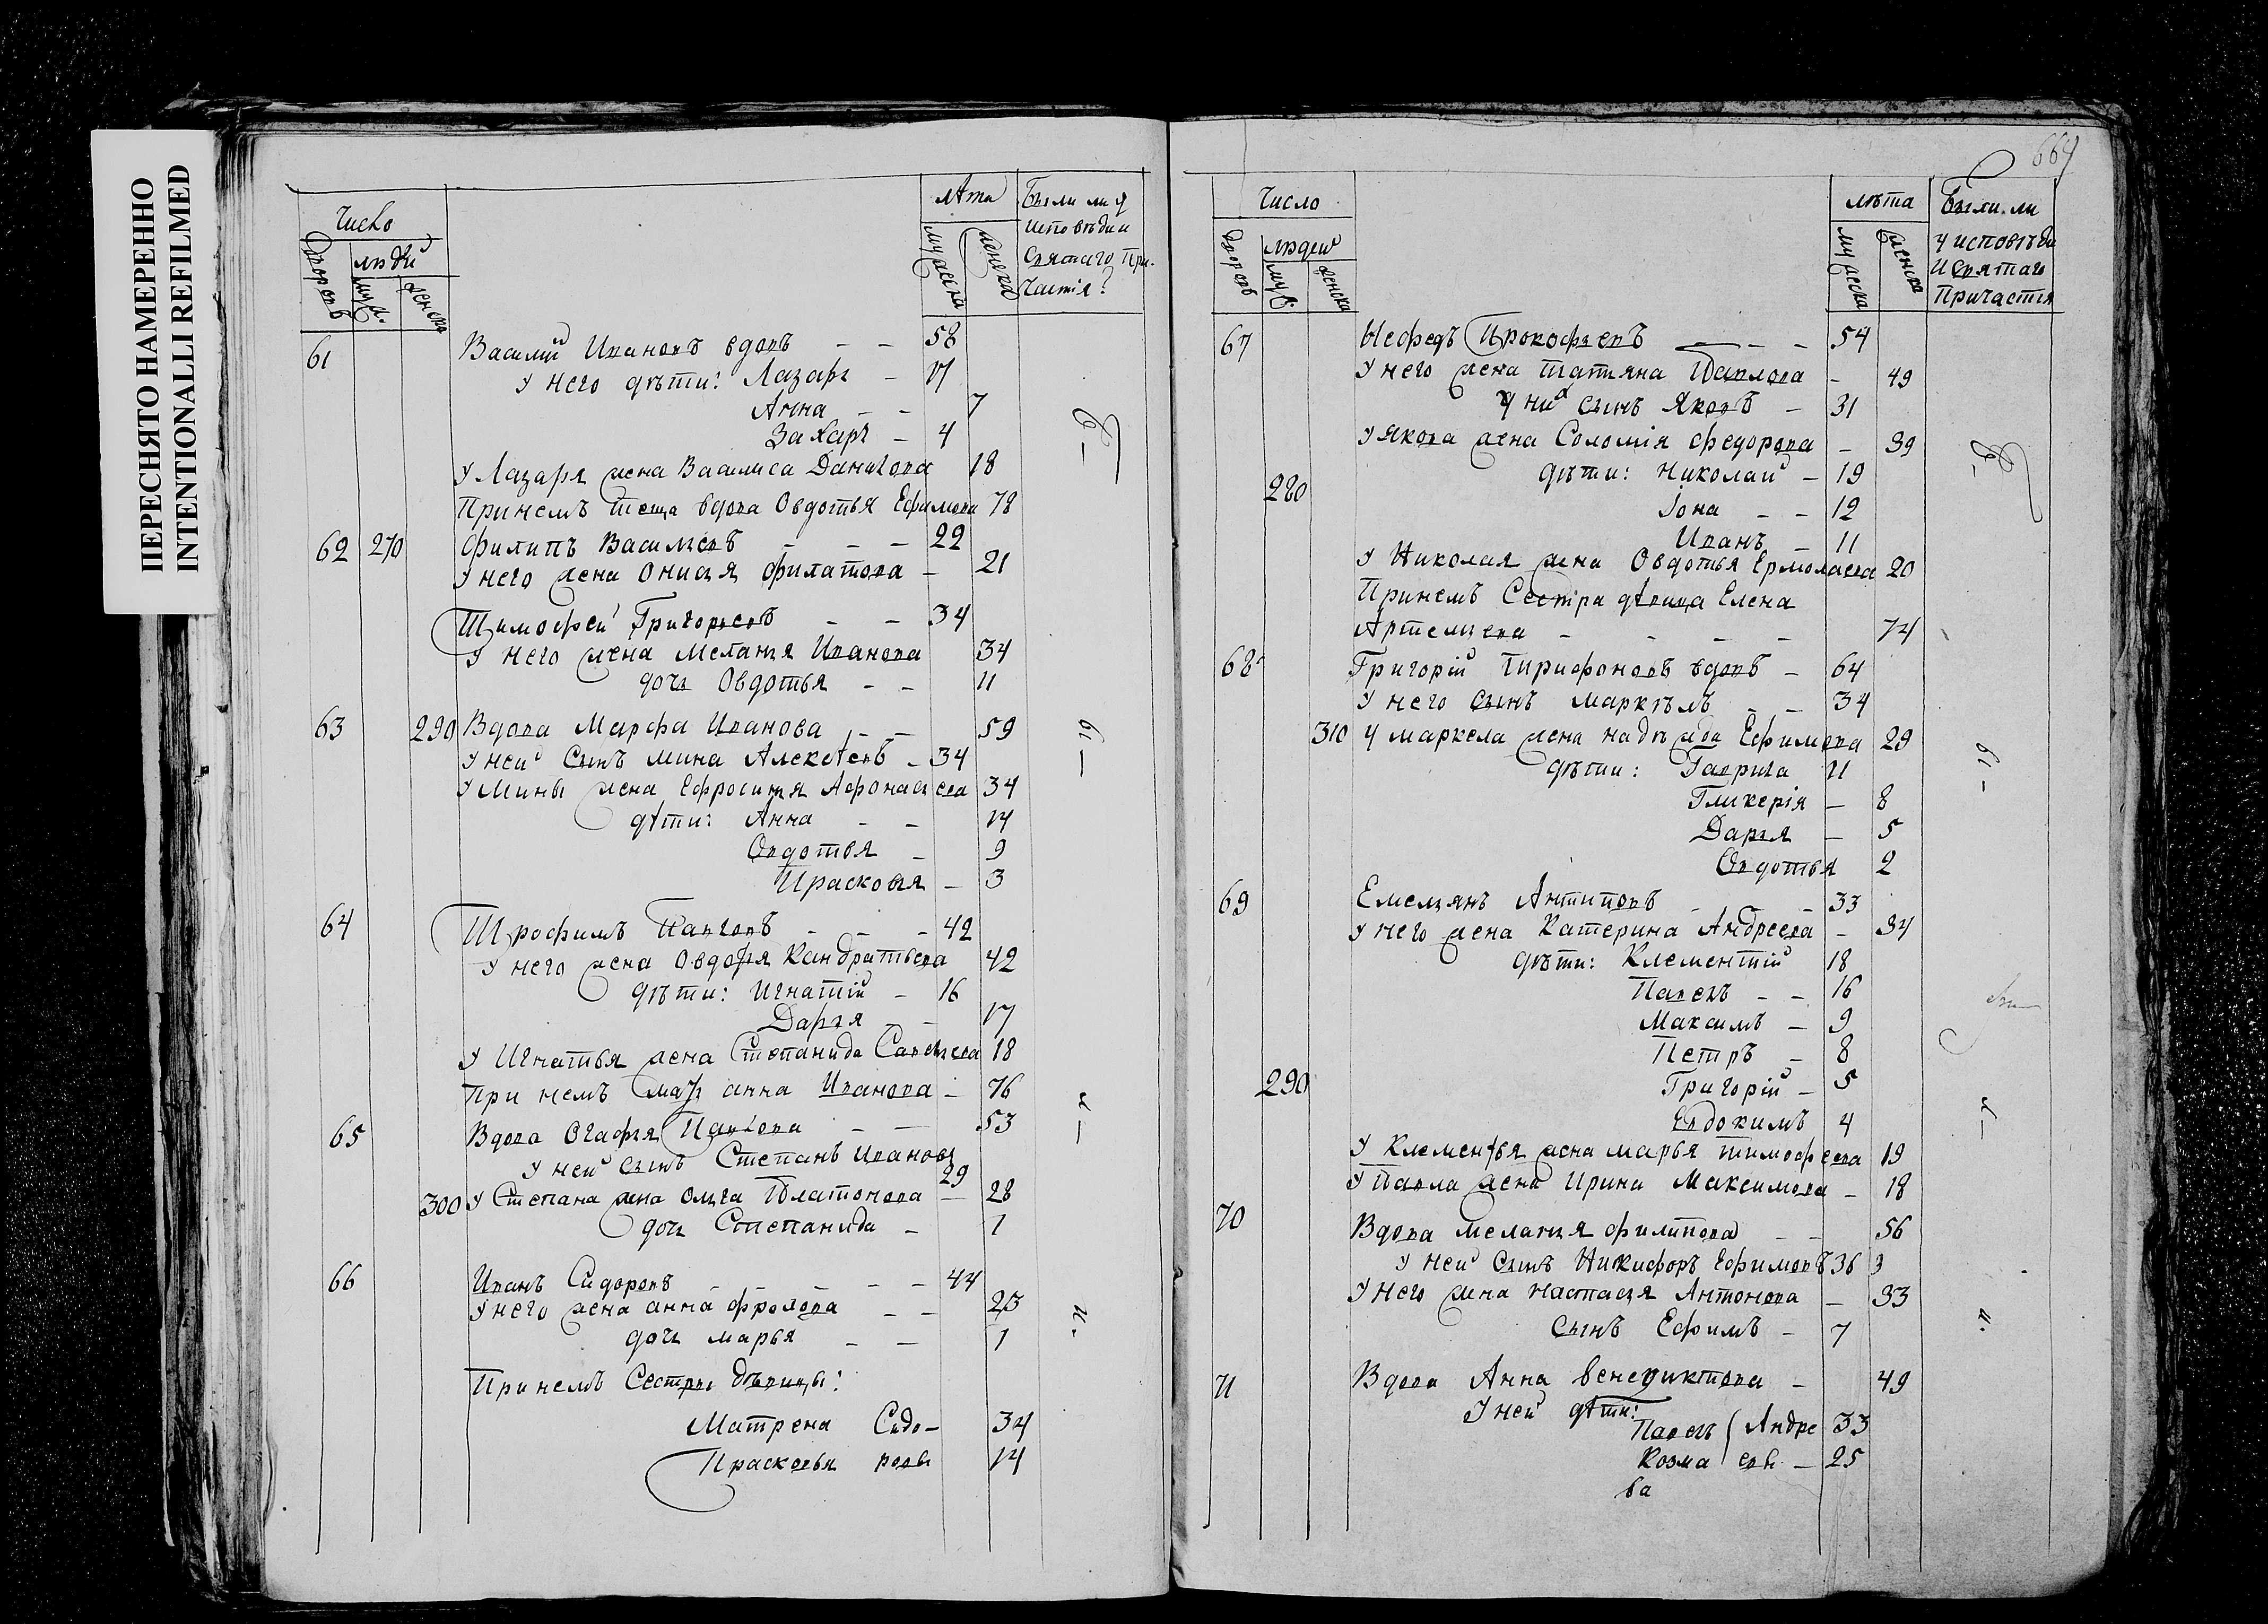 ПЕРЕСНЯТО НАМЕРЕННО
INTENTIONALLI REFILMED
Число
людей
дворовъ
муж.
женска
лѣта
мужеска
женска
Были ли у
исповѣди и
Святаго При-
частія?
61 Василий Ивановъ вдовъ - - 58
У него дѣти: Лазарь - 17
Анна - - 7
Захаръ - 4
У Лазаря жена Василиса Данилова 18
При немъ теща вдова Овдотья Ефимова 78
62 270 Филипъ Васильевъ - - - 22
У него жена Онисья Филатова - 21
Тимофей Григорьевъ - - 34
У него жена Меланья Иванова 34
дочь Овдотья - - 11
63 290 Вдова Марфа Иванова - - 59
У ней сынъ Мина Алексѣевъ - 34
У Мины жена Ефросинья Афонасьева 34
дѣти: Анна - - 14
Овдотья - 9
Прасковья - 3
64 Трофимъ Павловъ - - - 42
У него жена Овдотья Кандратьева 42
дѣти: Игнатій - 16
Дарья - - 17
У Игнатья жена Степанида Савельева 18
При немъ мать анна Иванова - 76
65 Вдова Огафья Павлова - - 53
У ней сынъ Степанъ Ивановъ 29
300 У Степана жена Ольга Платонова - 28
дочь Степанида - 1
66 Иванъ Сидоровъ - - - - - 44
У него жена анна Фролова - - 23
дочь марья - - 1
При немъ Сестры дѣвицы:
Матрена Сидо- 34
Прасковья ровы 14
664
Число
людей
дворовъ
муж.
женска
лѣта
мужеска
женска
Были ли
у исповѣди
и Святаго
Причастія
67 Нефедъ Прокофьевъ - - - 54
У него жена Татьяна Павлова - 49
У них сынъ Яковъ - 31
У Якова жена Соломія Федорова - 39
дѣти: Николай - 19
280
Іона - - 12
Иванъ - 11
У Николая жена Овдотья Ермолаева 20
При немъ Сестра дѣвица Елена
Артемьева - - - - 74
68 Григорій Тирифоновъ вдовъ - 64
У него сынъ маркѣлъ - - 34
310 У маркела жена надѣжда Ефимова 29
дѣти: Гаврила 11
Гликерія - 8
Дарья - 5
Овдотья 2
69 Емельянъ Антиповъ - - 33
У него жена Катерина Андреева - 34
дѣти: Клементій 18
Павелъ - - 16
Максимъ - 9
Петръ - 8
290 Григорій - 5
Евдокимъ 4
У Клементья жена марья Тимофеева 19
У Павла жена Ирина Максимова - 18
70 Вдова меланья Филипова - - 56
У ней сынъ Никифоръ Ефимовъ 36 3
У него жена Настасья Антонова - 33
Сынъ Ефимъ - 7
71 Вдова Анна Венедиктова - 49
У ней дѣти:
Павелъ Андре 33
Козма евы - 25
ва